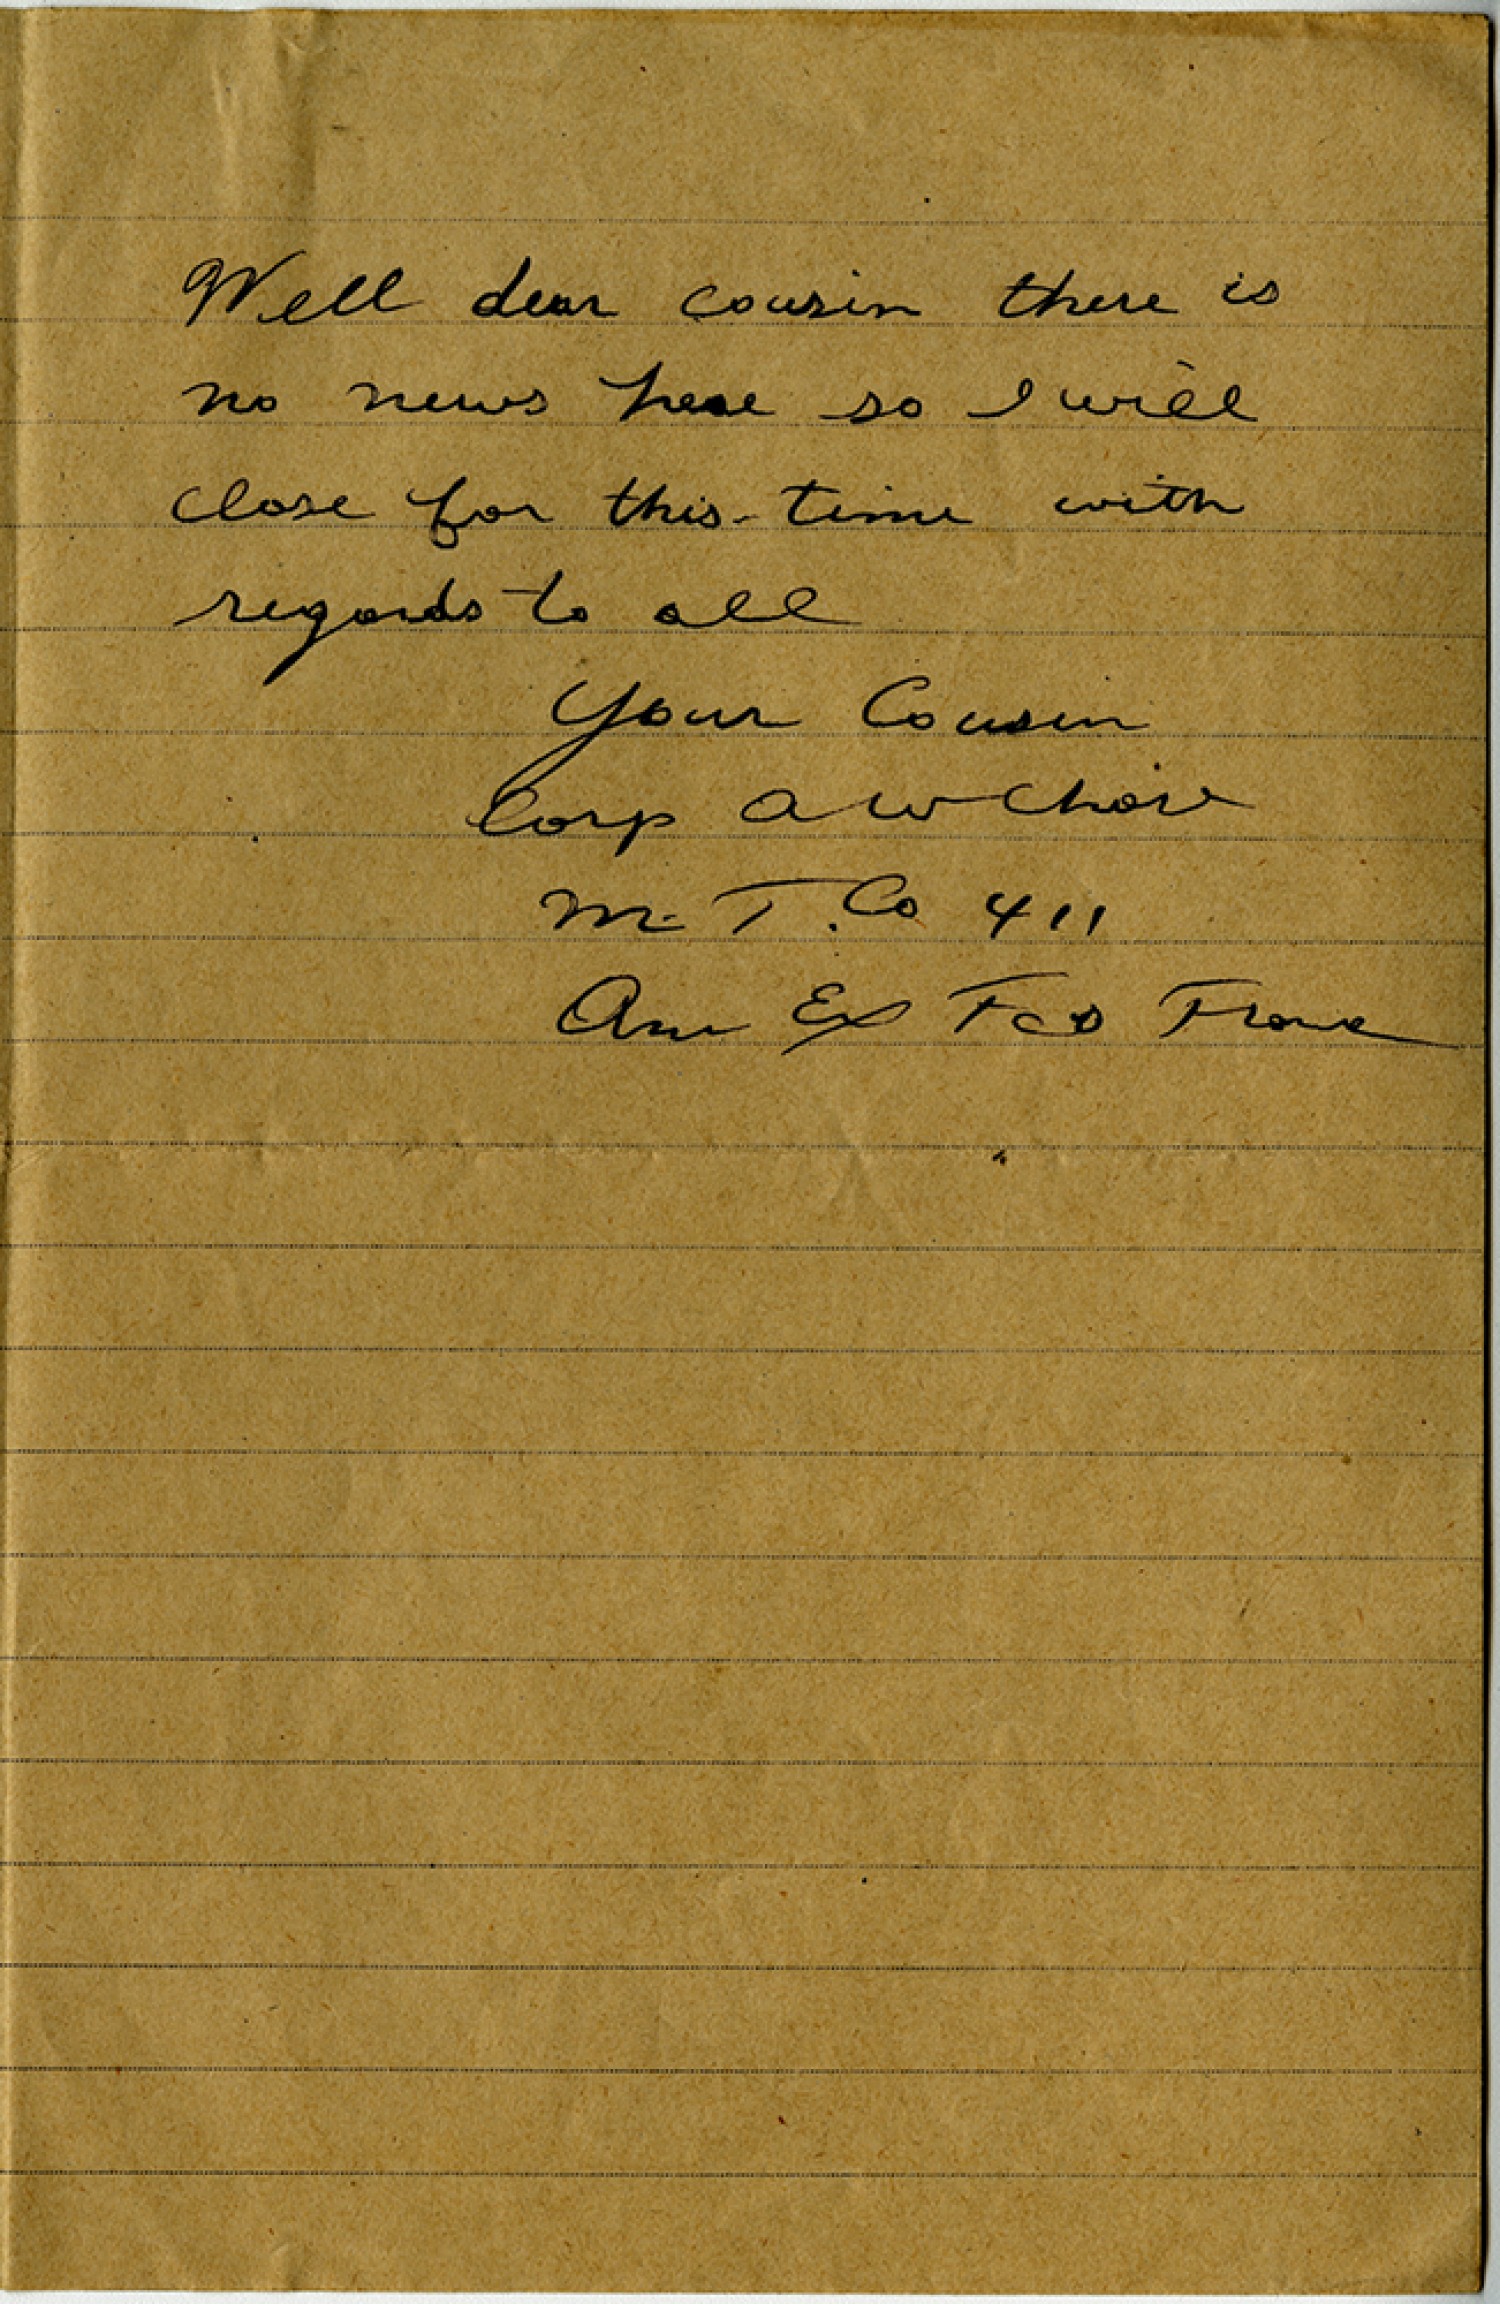 Well dear cousin there is
no news here so I will
close for this time with
regards to all
Your Cousin
Corp A W
M. T. Co 411
Am Ex Fcs France